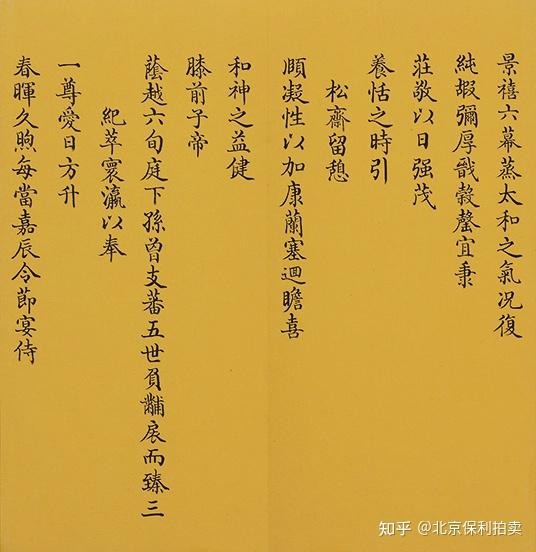 景禧六幕蒸太和之氣况復
純嘏彌厚戩穀罄宜秉
莊敬以日强茂
養恬之時引
松齋留憩
頤凝性以加康蘭塞迴瞻喜
和神之益健
膝前子帝
蔭越六旬庭下孫曾支蕃五世負黼扆而臻三
紀萃寰瀛以奉
一尊愛日方升
春暉久煦每當嘉辰令節宴侍
知乎 @北京保利拍卖